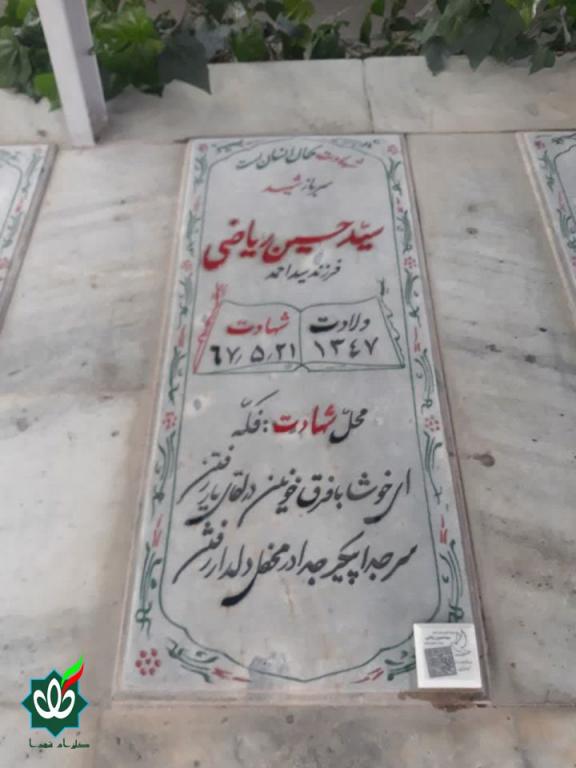 شهادت کمال انسان است
سرباز شهید
سیّد حسین ریاضی
فرزند سید احمد
ولادت شهادت
۱۳۴۷ ۶۷٫۵٫۲۱
محلّ شهادت : فکّه
ای خوشا با فرق خونین در لقای یار رفتن
سر جدا پیکر جدا در محفل دلدار رفتن
گلزار شهدا